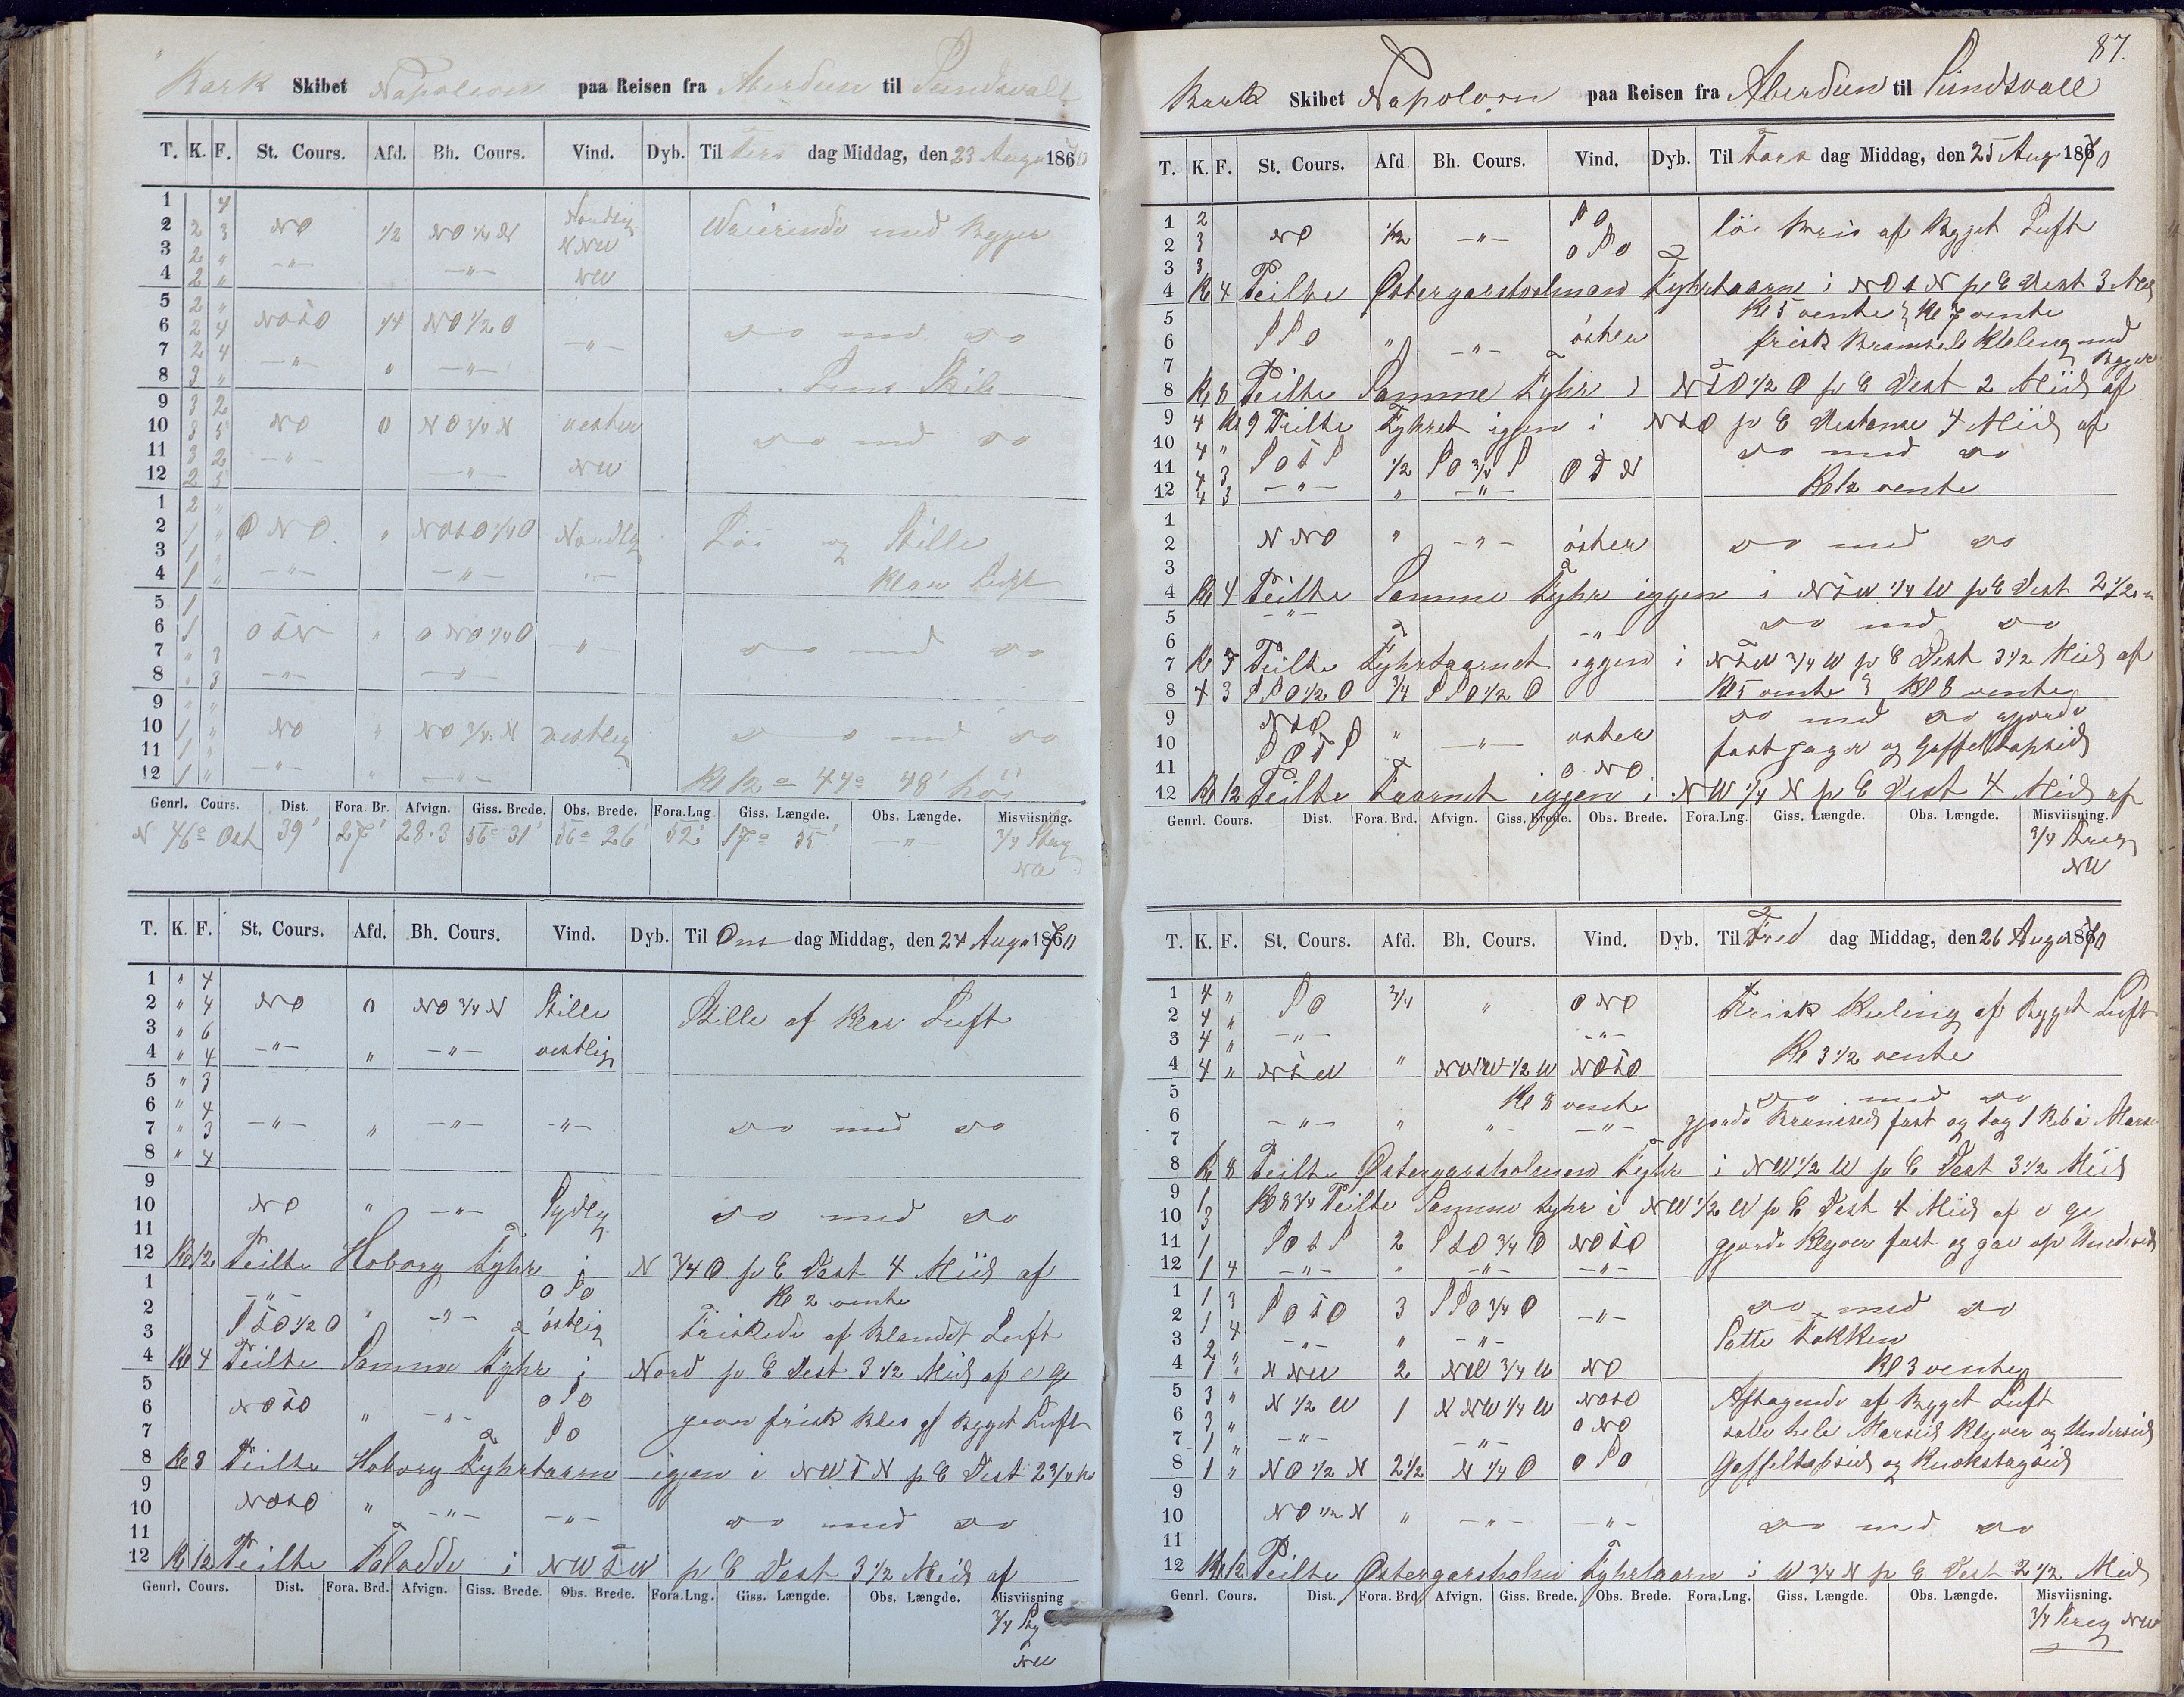 Bark Skibet Napoleon paa Reisen fra Aberdeen til Sundsvall
T. K. F. St. Cours. Afd. Bh. Cours. Vind. Dyb. Til Tirs dag Middag, den 23 Augu 1870
1 4
2 2 3 NO 1/2 NO 1/4 N Nordlig
3 2 " NNW
4 2 " -"- -"- NW
5 2 "
6 2 4 NOtO 1/4 NO 1/2 O do med do
7 2 4 -"- " -"- -"-
8 3 "
9 3 2
10 3 5 NO 0 NO 3/4 N vester do med do
11 3 2 -"- -"- NW
12 2 5
1 2 "
2 1 " ONO " NOtO 1/4 O Nordlig Löi og Stille
3 1 "
4 1 " -"- -"- -"- Klar Luft
5 1
6 1 OtN " ONO 1/4 O -"-
7 " 3 do med do
8 " 3 -"- -"-
9 " "
10 1 " NO " NO 3/4 N vestlig do med do
11 1 "
12 1 " -"- " -"- Kl 12 = 44° 48'
Genrl. Cours. Dist. Fora Br. Afvign. Giss. Brede. Obs. Brede. Fora.Lng. Giss. Længde. Obs. Længde. Misviisning.
N 46° Ost 39' 27' 28.3 56° 31' 56° 26' 52' 17° 55' -"- 3/4 Streg
NW
T. K. F. St. Cours. Afd. Bh. Cours. Vind. Dyb. Til Ons dag Middag, den 24 Augu 1870
1 " 4
2 " 4 NO 0 NO 3/4 N Stille Stille af Klar Luft
3 " 6
4 " 4 -"- " -"- vestlig
5 " 3
6 " 4
7 " 3 -"- " -"- -"- do med do
8 " 4
9
10 NO " -"- Sydlig do med do
11
12 Kl 12 Peilte Hoborg Fyhr i N 3/4 O p C Dest 4 Miil af
1 -"- OSO Kl 2 vente
2 StO 1/2 O " -"- östlig Friskede af Blandet Luft
3
4 Kl 4 Peilte Samme Fyhr i Nord p C Dest 3 1/2 Miil af
5
6 NOtO " -"- OSO
7 SO frisk af Bygget Luft
8 Kl 8 Peilte Hoborg Fyhrtaarn igen i NWtN p C Dest 2 3/4
9
10 NOtO " -"- -"- do med do
11
12 Kl 12 Peilte i NWtW p C Dest 3 1/2 Miil af
Genrl. Cours. Dist. Fora. Brd. Afvign. Giss. Brede. Obs. Brede. Fora.Lng. Giss. Længde. Obs. Længde. Misviisning
3/4 Stg
NW
87.
Bark Skibet Napoleon paa Reisen fra Aberdeen til Sundsvall
T. K. F. St. Cours. Afd. Bh. Cours. Vind. Dyb. Til Tors dag Middag, den 25 Aug 1870
1 2 SO
2 3 NO 1/2 -"- löi Bris af Bygget Luft
3 3 OSO
4 Kl 4 Peilte Östergarsholman Fyhrtaarn i NOtN p C Dest 3 Miil
5 Kl 5 vente } Kl 7 vente
6 SSO " -"- öster frisk Bramseils Kuling med
7 Bygger
8 Kl 8 Peilte Samme Fyhr i NtO 1/2 O p C Dest 2 Miil af
9 4 Kl 9 Peilte Fyhret igen i NtO p C Destanse 4 Miil af
10 4 " do med do
11 4 3 SOtS 1/2 SO 3/4 S OtN
12 4 3 -"- " -"- Kl 12 vente
1
2 NNO " -"- öster do med do
3
4 Kl 4 Peilte Samme Fyhr iggen i NtW 1/4 W p C Dest 2 1/2 m
5 -"-
6 -"- do med do
7 Kl 7 Peilte Fyhrtaarnet iggen i NtW 3/4 W p C Dest 3 1/2 Miil af
8 4 3 SSO 1/2 O 3/4 SSO 1/2 O Kl 5 vente } Kl 8 vente
9 NtO do med do gjorde
10 SOtS " -"- oster fast Jager og Gaffeltopseil
11 ONO
12 Kl 12 Peilte Taarnet iggen i NW 1/4 N p C Dest 4 Miil af
Genrl. Cours. Dist. Fora. Brd. Afvign. Giss. Brede. Obs. Brede. Fora.Lng. Giss. Længde. Obs. Længde. Misviisning.
3/4 Streg
NW
T. K. F. St. Cours. Afd. Bh. Cours. Vind. Dyb. Til Fred dag Middag, den 26 Augu 1870
1 4 " SO 3/4 " ONO Frisk Kuling af Bygget Luft
2 4 "
3 4 " -"- -"-
4 4 " NtW " NWW 1/2 W NOtO Kl 3 1/2 vente
5 Kl 8 vente do med do
6 -"- " "- -"- gjorde Bramseil fast og tog 1 Reb i Mars
7
8 Kl 8 Peilte Östergarsholmen Fyhr i NW 1/2 W p C Dest 3 1/2 Miil
9 1 Kl 8 3/4 Peilte Samme Fyhr i NW 1/2 W p C Dest 4 Miil af
10 3
11 1 SOtS 2 StO 3/4 O NOtO gjorde Klyver fast og
12 1 4 -"- " -"- -"-
1 1 3
2 1 4 SOtO 3 SSO 3/4 O -"- do med do
3 2 " -"- " -"- Satte Fokken
4 1 " NNW 2 NW 3/4 W NO Kl 3 vente
5 3 " N 1/2 W 1 NNW 1/4 W NOtO Aftagende af Bygget Luft
6 3 " ONO satte hele Marseil Klyver og Underseil
7 1 " -"- -"-
8 1 " NO 1/2 N 2 1/2 N 1/4 O OSO Gaffeltopseil og
9
10 NO 1/2 N " -"- -"- do med do
11
12 Kl 12 Peilte Östergarsholm Fyhrtaarn i W 3/4 N p C Dest 2 1/2 Miil
Genrl. Cours. Dist. Fora. Brd. Afvign. Giss. Brede. Obs. Brede. Fora.Lng. Giss. Længde. Obs. Længde. Misviisning.
3/4 Streg NW